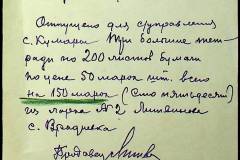 Отпущено для с/управления
с. Кумары Три большие тет-
ради по 200 листов бумаги
по цене 50 марок шт. всего
на 150 марок (Сто пятьдесят)
из ларка № 2
с. Врадиевка